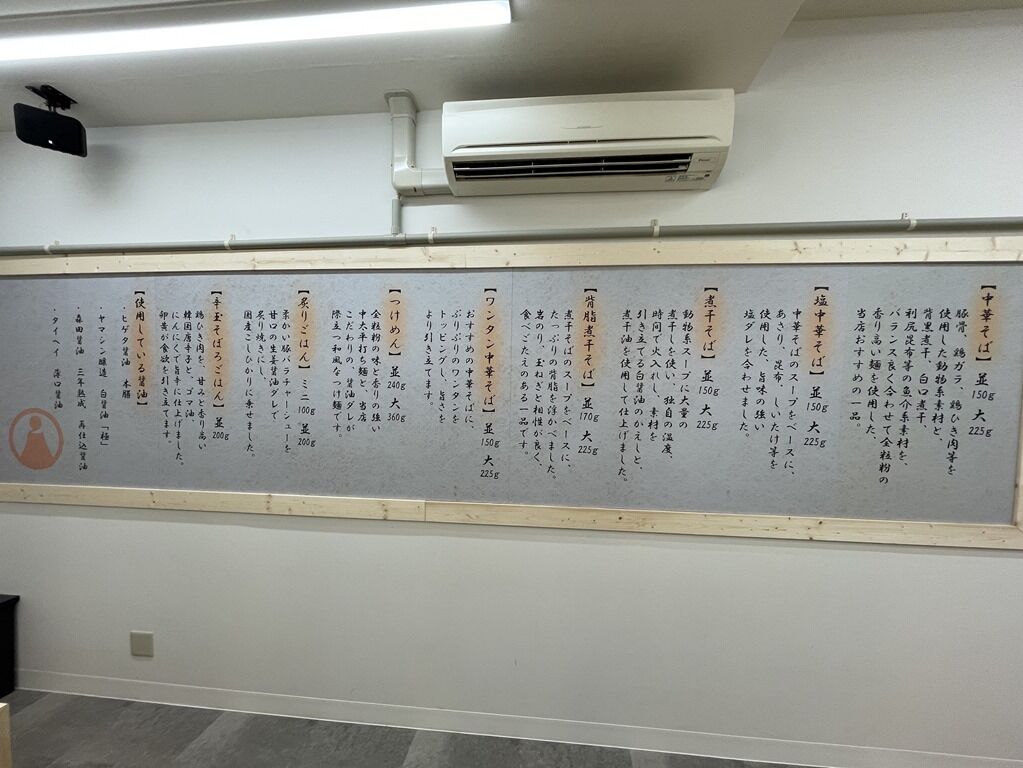 【中華そば】並150g 大225g
豚骨、鶏ガラ、鶏ひき肉等を
使用した動物系素材と、
背黒煮干、白口煮干、
利尻昆布等の魚介系素材を、
バランス良く合わせて全粒粉の
香り高い麺を使用した、
当店おすすめの一品。
【塩中華そば】並150g 大225g
中華そばのスープをベースに、
あさり、昆布、しいたけ等を
使用した、旨味の強い
塩ダレを合わせました。
【煮干そば】並150g 大225g
動物系スープに大量の
煮干しを使い、独自の温度、
時間で火入れし、素材を
引き立てる白醤油のかえしと、
煮干油を使用して仕上げました。
【背脂煮干そば】並170g 大225g
煮干そばのスープをベースに、
たっぷりの背脂を浮かべました。
岩のり、玉ねぎと相性が良く、
食べごたえのある一品です。
【ワンタン中華そば】並150g 大225g
おすすめの中華そばに、
ぷりぷりのワンタンを
トッピングし、旨さを
より引き立てます。
【つけめん】並240g 大360g
全粒粉の味と香りの強い
中太平打ち麺と、当店
こだわりの醤油ダレが
際立つ和風なつけ麺です。
【炙りごはん】ミニ100g 並200g
柔かい豚バラチャーシューを
甘口の生姜醤油ダレで
炙り焼きにし、
国産こしひかりに乗せました。
【辛玉そぼろごはん】並200g
鶏ひき肉を、甘みと香り高い
韓国唐辛子と、ゴマ油、
にんにくで旨辛に仕上げました。
卵黄が食欲を引き立てます。
【使用している醤油】
・ヒゲタ醤油 本膳
・ヤマシン醸造 白醤油「極」
・森田醤油 三年熟成 再仕込醤油
・タイヘイ 薄口醤油